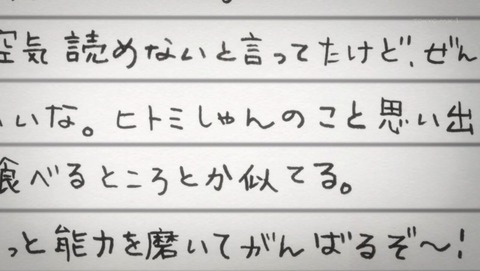 空気 読めないと言ってたけど、ぜん
いな。ヒトミしゃんのこと思い出
食べるところとか似てる。
っと能力を磨いてがんばるぞ〜!